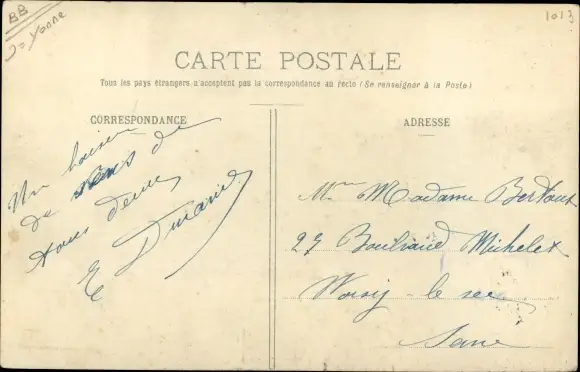 BB
Yonne
1013
CARTE POSTALE
Tous les pays étrangers n'acceptent pas la correspondance au recto (Se renseigner à la Poste)
CORRESPONDANCE
Un baiser
de de
tous deux
E Durand
ADRESSE
Madame
23 Michelet
le sec
Seine